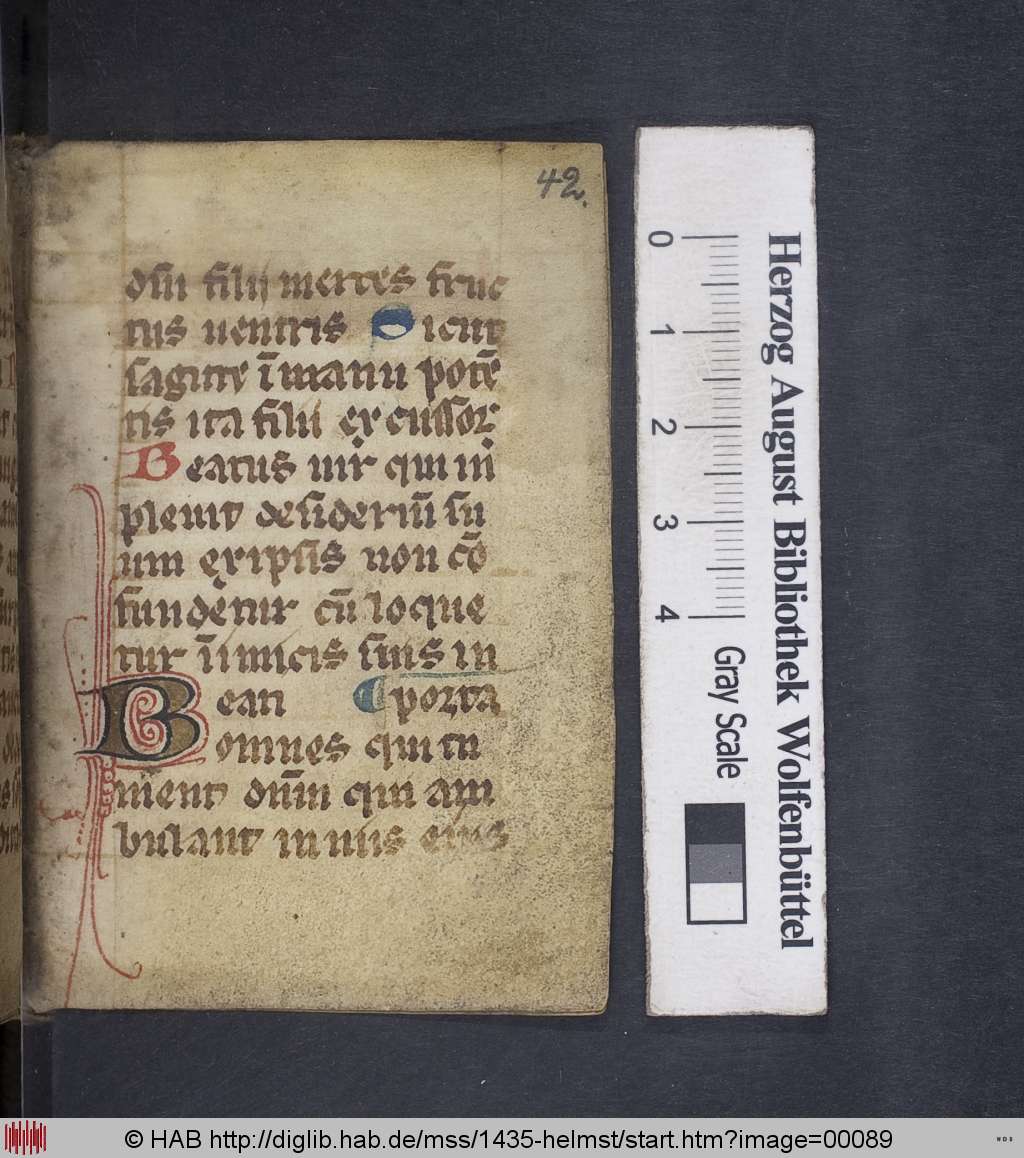 42.
dni filii merces fruc
tus uentris Sicut
sagitte ī manu potē
tis ita filii excussor
Beatus uir qui in
pleuit desideriū su
um ex ipsis non cō
fundetur cū loque
tur īimicis suis in
Beati ¶ porta
omnes qui ti
ment dn̄m qui am
bulant in uiis eius
0
1
2
3
4
Gray Scale
Herzog August Bibliothek Wolfenbüttel
© HAB http://diglib.hab.de/mss/1435-helmst/start.htm?image=00089